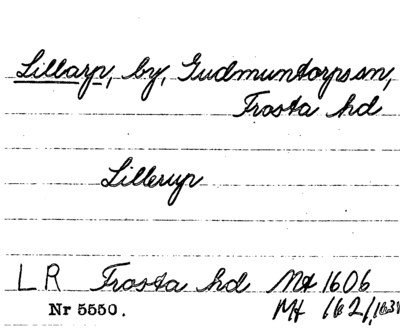 Lillarp, by, Gudmuntorps sn,
Frosta hd
Lillerup
LR Frosta hd Mt 1606
Nr 5550. Mt 1621,